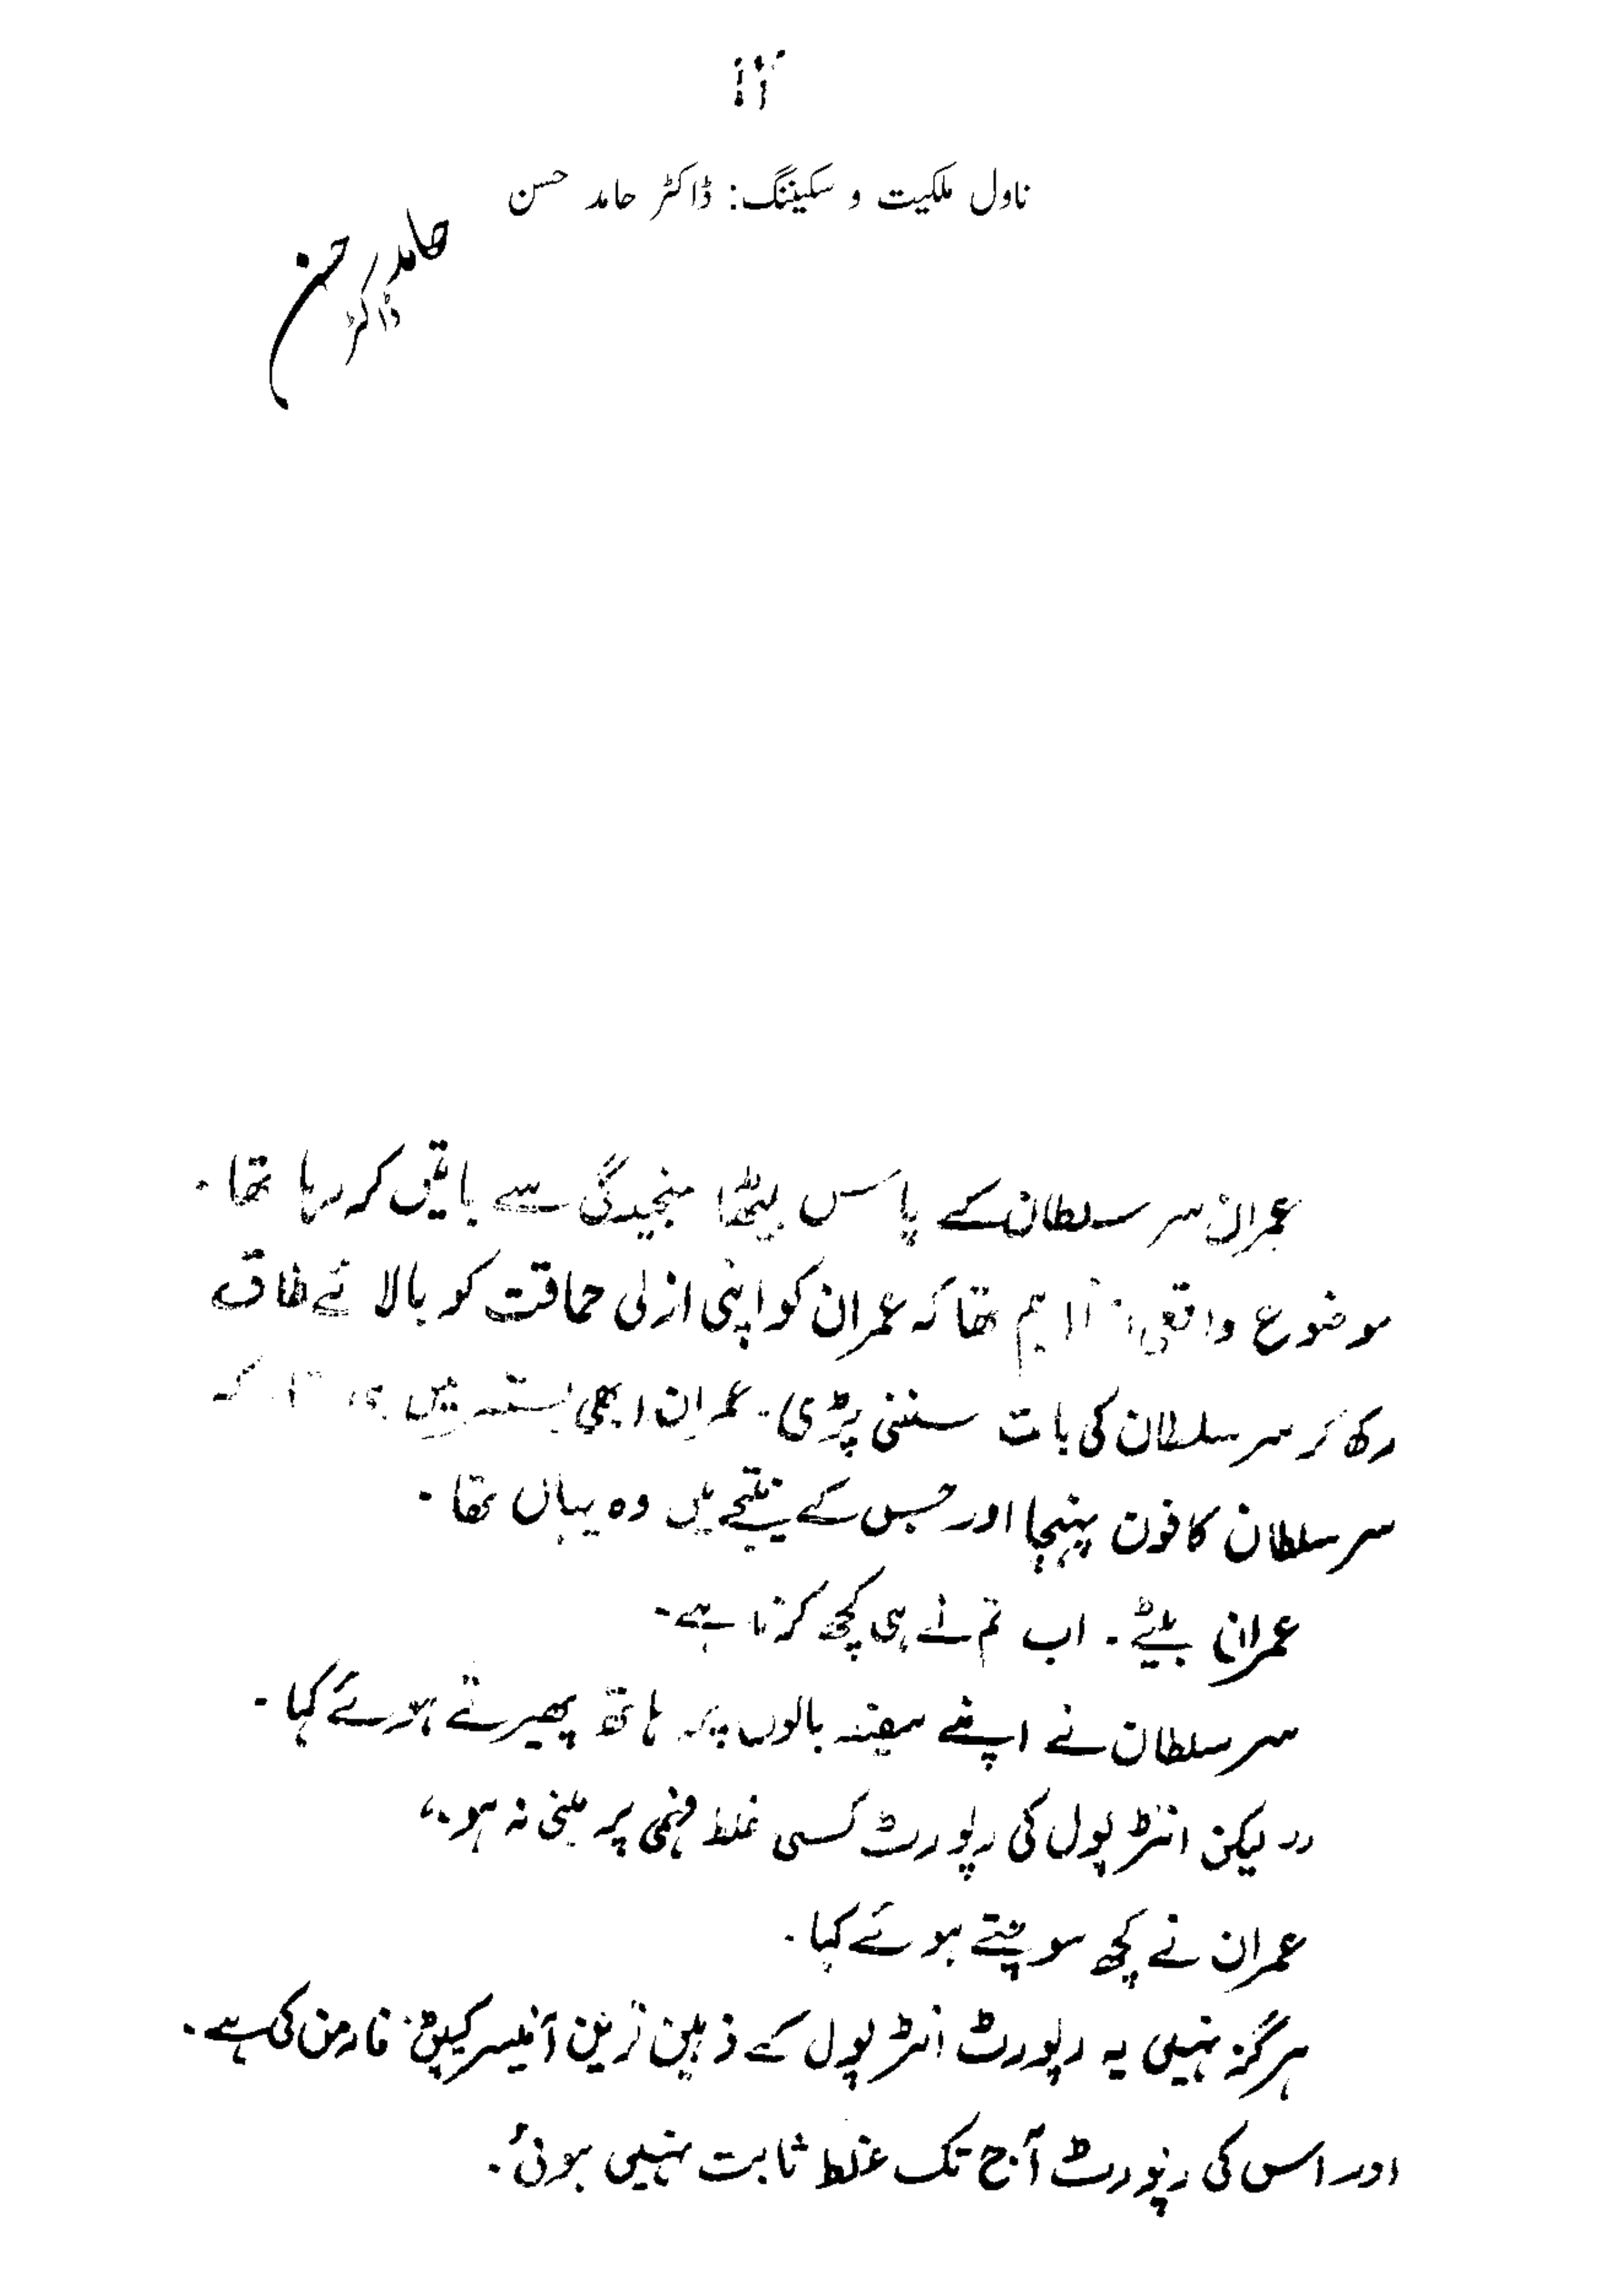 ناول ملکیت و سکیننگ: ڈاکٹر حامد حسن
ڈاکٹر حامد حسن
عمران سر سلطان کے پاس بیٹھا سنجیدگی سے باتیں کر رہا تھا۔
موضوع واقعی اہم تھا کہ عمران کو اپنی ازلی حماقت کو بالائے طاق
رکھ کر سر سلطان کی بات سننی پڑی۔ عمران ابھی بستر میں ہی کہ
سر سلطان کا فون پہنچا اور جس کے نتیجے میں وہ یہاں تھا۔
عمران بیٹے۔ اب تم نے ہی کچھ کرنا ہے۔
سر سلطان نے اپنے سفید بالوں پر ہاتھ پھیرتے ہوئے کہا۔
"لیکن انٹر پول کی رپورٹ کسی غلط فہمی پر مبنی نہ ہو۔"
عمران نے کچھ سوچتے ہوئے کہا۔
ہرگز نہیں یہ رپورٹ انٹر پول کے ذہین ترین آفیسر کیپٹن فارمن کی ہے۔
اور اس کی رپورٹ آج تک غلط ثابت نہیں ہوئی۔